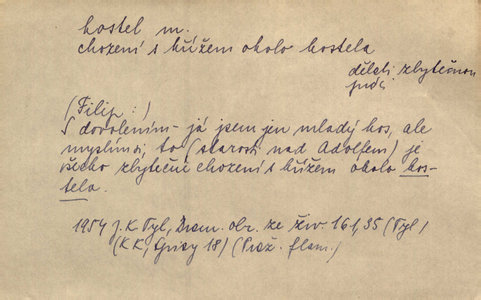 kostel m.
chození s křížem okolo kostela
dělati zbytečnou
práci
(Filip:)
S dovolením – já jsem jen mladý kos, ale
myslím si, to (starosti nad Adolfem) je
všecko zbytečné chození s křížem okolo kos-
tela.
1954 J. K. Tyl, Dram. obr. ze živ. 161,35 (Tyl)
(KK, 18) (Praž. flam.)